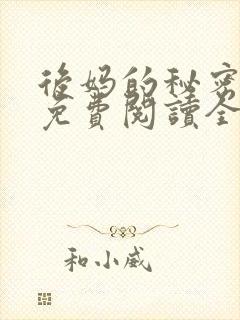 後妈的秘密
免費閱讀全
和小威